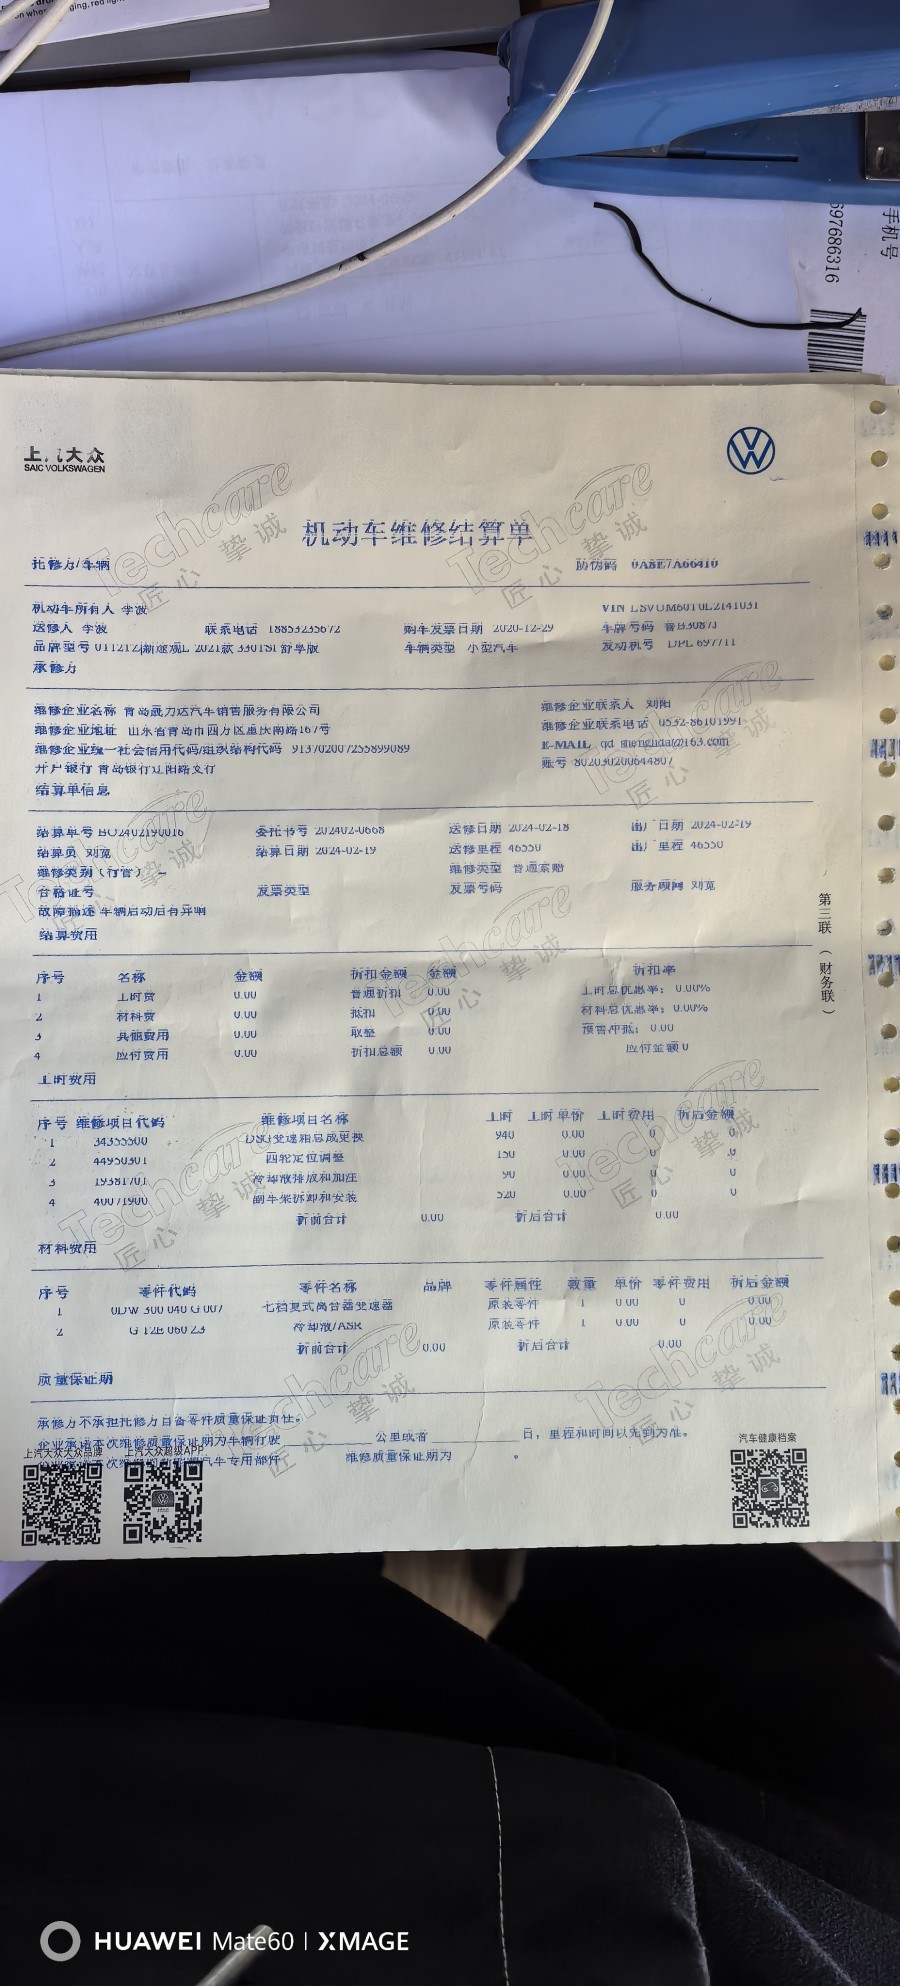 ging, red lig
697686316
手机号
上汽大众
SAIC VOLKSWAGEN
机动车维修结算单
托修方/车辆 防伪码 0A8E7A66410
机动车所有人 李波 VIN LSVUM60T0L2141031
送修人 李波 联系电话 18853235672 购车发票日期 2020-12-29 车牌号码
品牌型号 新途观L 2021款 330TSI 舒享版 车辆类型 小型汽车 发动机号 DPL 697711
承修方
维修企业名称 青岛晟力达汽车销售服务有限公司 维修企业联系人 刘阳
维修企业地址 山东省青岛市四方区重庆南路167号 维修企业联系电话 0532-86101991
维修企业统一社会信用代码/组织结构代码 913702007255899089 E-MAIL
开户银行 青岛银行辽阳路支行 账号 802030200644807
结算单信息
结算单号 BO2402190016 委托书号 202402-0668 送修日期 2024-02-18 出厂日期 2024-02-19
结算员 刘宽 结算日期 2024-02-19 送修里程 46550 出厂里程 46550
维修类别（行管） -- 维修类型 普通索赔
合格证号 发票类型 发票号码 服务顾问 刘宽
故障描述 车辆启动后有异响
结算费用
序号 名称 金额 折扣金额 金额 折扣率
1 工时费 0.00 普通折扣 0.00 工时总优惠率： 0.00%
2 材料费 0.00 抵扣 0.00 材料总优惠率： 0.00%
3 其他费用 0.00 取整 0.00 预售冲抵： 0.00
4 应付费用 0.00 折扣总额 0.00 应付金额 0
工时费用
序号 维修项目代码 维修项目名称 工时 工时单价 工时费用 折后金额
1 34355500 DSG变速箱总成更换 940 0.00 0 0
2 44950301 四轮定位调整 150 0.00 0 0
3 19381701 冷却液排放和加注 90 0.00 0 0
4 40071900 副车架拆卸和安装 520 0.00 0 0
折前合计 0.00 折后合计 0.00
材料费用
序号 零件代码 零件名称 品牌 零件属性 数量 单价 零件费用 折后金额
1 0DW 300 040 G 007 七档复式离合器变速器 原装零件 1 0.00 0 0.00
2 G 12E 060 Z3 冷却液/ASK 原装零件 1 0.00 0 0.00
折前合计 0.00 折后合计 0.00
质量保证期
承修方不承担托修方自备零件质量保证责任。
企业承诺本次维修质量保证期为车辆行驶 公里或者 日，里程和时间以先到为准。
汽车专用部件 维修质量保证期为 。
上汽大众大众品牌 上汽大众超级APP 汽车健康档案
第三联（财务联）
Techcare
匠心 挚诚
HUAWEI Mate60 | XMAGE